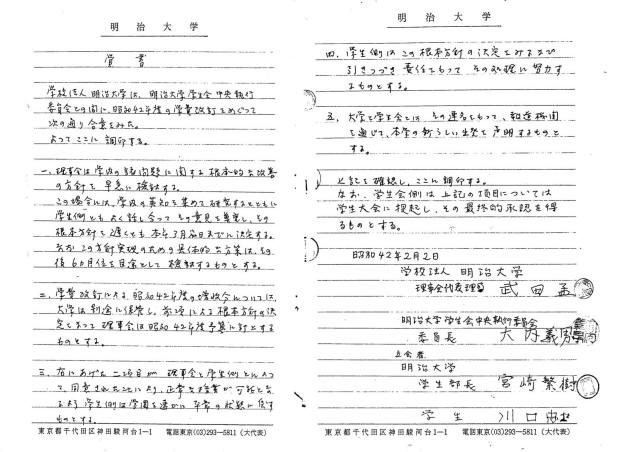 明治大学
覚書
学校法人明治大学は、明治大学学生会中央執行
委員会との間に、昭和42年度の学費改訂をめぐって
次の通り合意をみた。
よってここに調印する。
一、理事会は学内の諸問題に関する根本的な改善
の方針を早急に検討する。
この場合には、学内の英知を集めて研究するとともに
学生側ともよく話し合ってその意見を尊重し、その
根本方針を遅くとも本年3月末日までに決定する。
なおこの方針実現のための具体的な方策は、その
後6カ月位を目途として検討するものとする。
二、学費改訂による昭和42年度の増収分については、
大学は別途に保管し、前項による根本方針の決
定をまって理事会は昭和42年度予算に計上する
ものとする。
三、右にあげた二項目が理事会と学生側とによっ
て、同意されたことにより、正常な授業が可能とな
るよう学生側は学園を速かに平常の状態に復す
ものとする。
東京都千代田区神田駿河台1―1 電話東京(03)293―5811(大代表)
明治大学
四、学生側はこの根本方針の決定をみるまで
引きつづき責任をもってその処理に努力す
るものとする。
五、大学と学生会とは、その連名をもって、報道機関
を通じて、本学の新らしい出発を声明するものと
する。
上記を確認し、ここに調印する。
なお、学生会側は上記の項目については
学生大会に提起し、その最終的承認を得
るものとする。
昭和42年2月2日
学校法人 明治大学
理事会代表理事 武田孟
明治大学学生会中央執行委員会
委員長 大内義男
立会者
明治大学
学生部長 宮崎繁樹
学生 川口忠
東京都千代田区神田駿河台1―1 電話東京(03)293―5811(大代表)